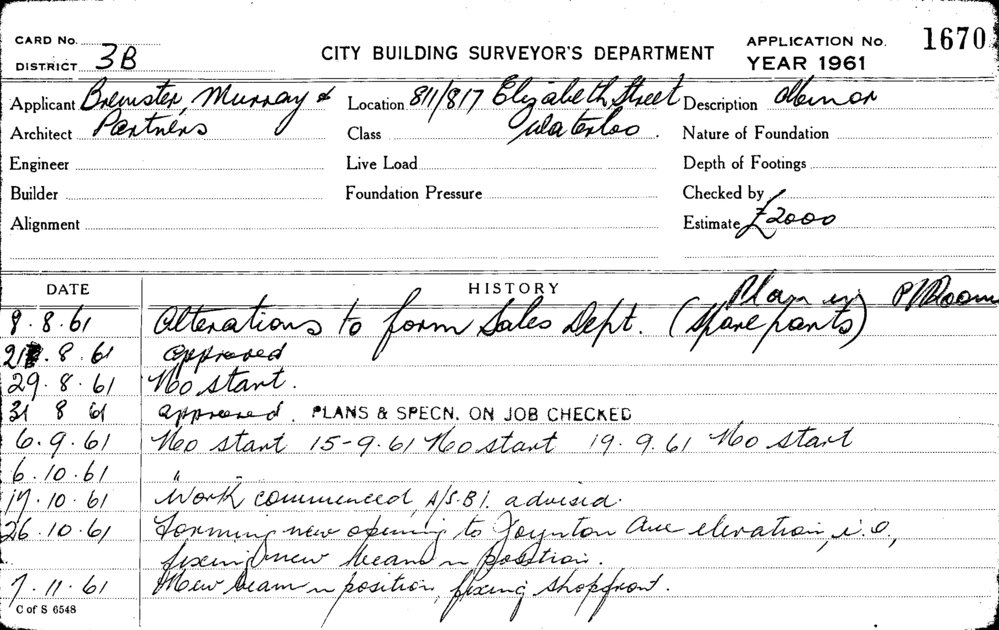 CARD No.
DISTRICT 3B
CITY BUILDING SURVEYOR'S DEPARTMENT
APPLICATION No. 1670
YEAR 1961
Applicant Brewster, Murray & Location 811/817 Elizabeth Street Description Minor
Architect Partners Class Waterloo. Nature of Foundation
Engineer Live Load Depth of Footings
Builder Foundation Pressure Checked by
Alignment Estimate £2000
DATE HISTORY Plan in P/Room
9.8.61 Alterations to form Sales Dept. (Spare parts)
21.8.61 approved
29.8.61 No start.
31 8 61 approved. PLANS & SPECN. ON JOB CHECKED
6.9.61 No start 15-9.61 No start 19.9.61 No start
6.10.61 " "
17.10.61 Work commenced, A/S.B.I. advised.
26.10.61 Forming new opening to Joynton Ave elevation, i.e.,
fixing new beam in position.
7.11.61 New beam in position, fixing shopfront.
C of S 6548